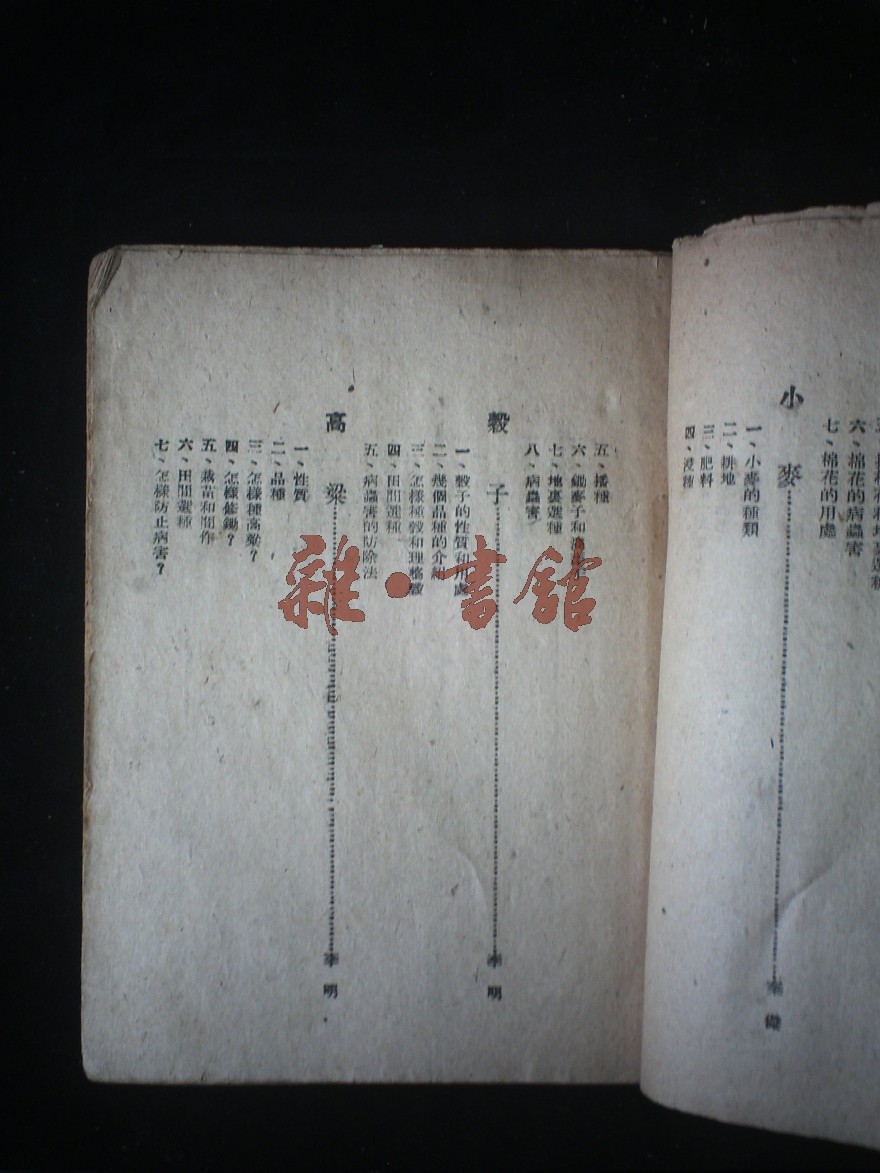 六、棉花的病蟲害
七、棉花的用處
小麥
李
一、小麥的種類
二、耕地
三、肥料
四、浸種
五、播種
六、鋤麥子和
七、地裏選種
八、病蟲害
穀子
李明
一、穀子的性質和用處
二、幾個品種的介紹
三、怎樣種穀和
四、田間選種
五、病蟲害的防除法
高粱
李明
一、性質
二、品種
三、怎樣種高粱？
四、怎樣修鋤？
五、栽苗和間作
六、田間選種
七、怎樣防止病害？
雜·書館